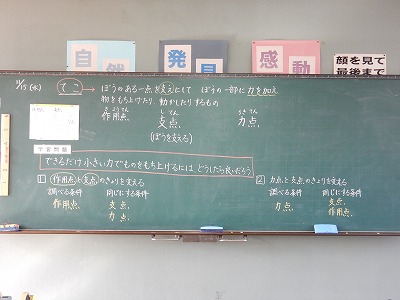 自然
発見
感動
顔を見て
最後まで
11/15(水)
てこ → ぼうのある一点を支えにして ぼうの一部に力を加え
物をもち上げたり 動かしたりするもの
さようてん
作用点
してん
支点
りきてん
力点
(ぼうを支える)
学習問題
できるだけ小さい力でものをもち上げるには どうしたら良いだろう
1 作用点と支点のきょりを変える
調べる条件 同じにする条件
作用点 支点
力点
2 力点と支点のきょりを変える
調べる条件 同じにする条件
力点 支点
作用点